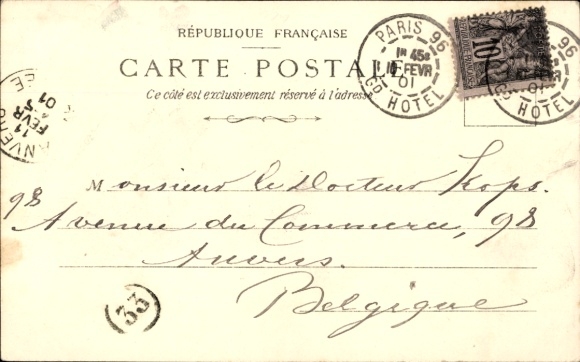 RÉPUBLIQUE FRANÇAISE
CARTE POSTALE
Ce côté est exclusivement réservé à l'adresse
PARIS 96
1E 45S
FEVR
01
GD HOTEL
10
PARIS 96
01
GD HOTEL
ANVERS
11
FEVR
01
Monsieur le Docteur Kops.
98
Avenue du Commerce, 98
Anvers.
Belgique
33